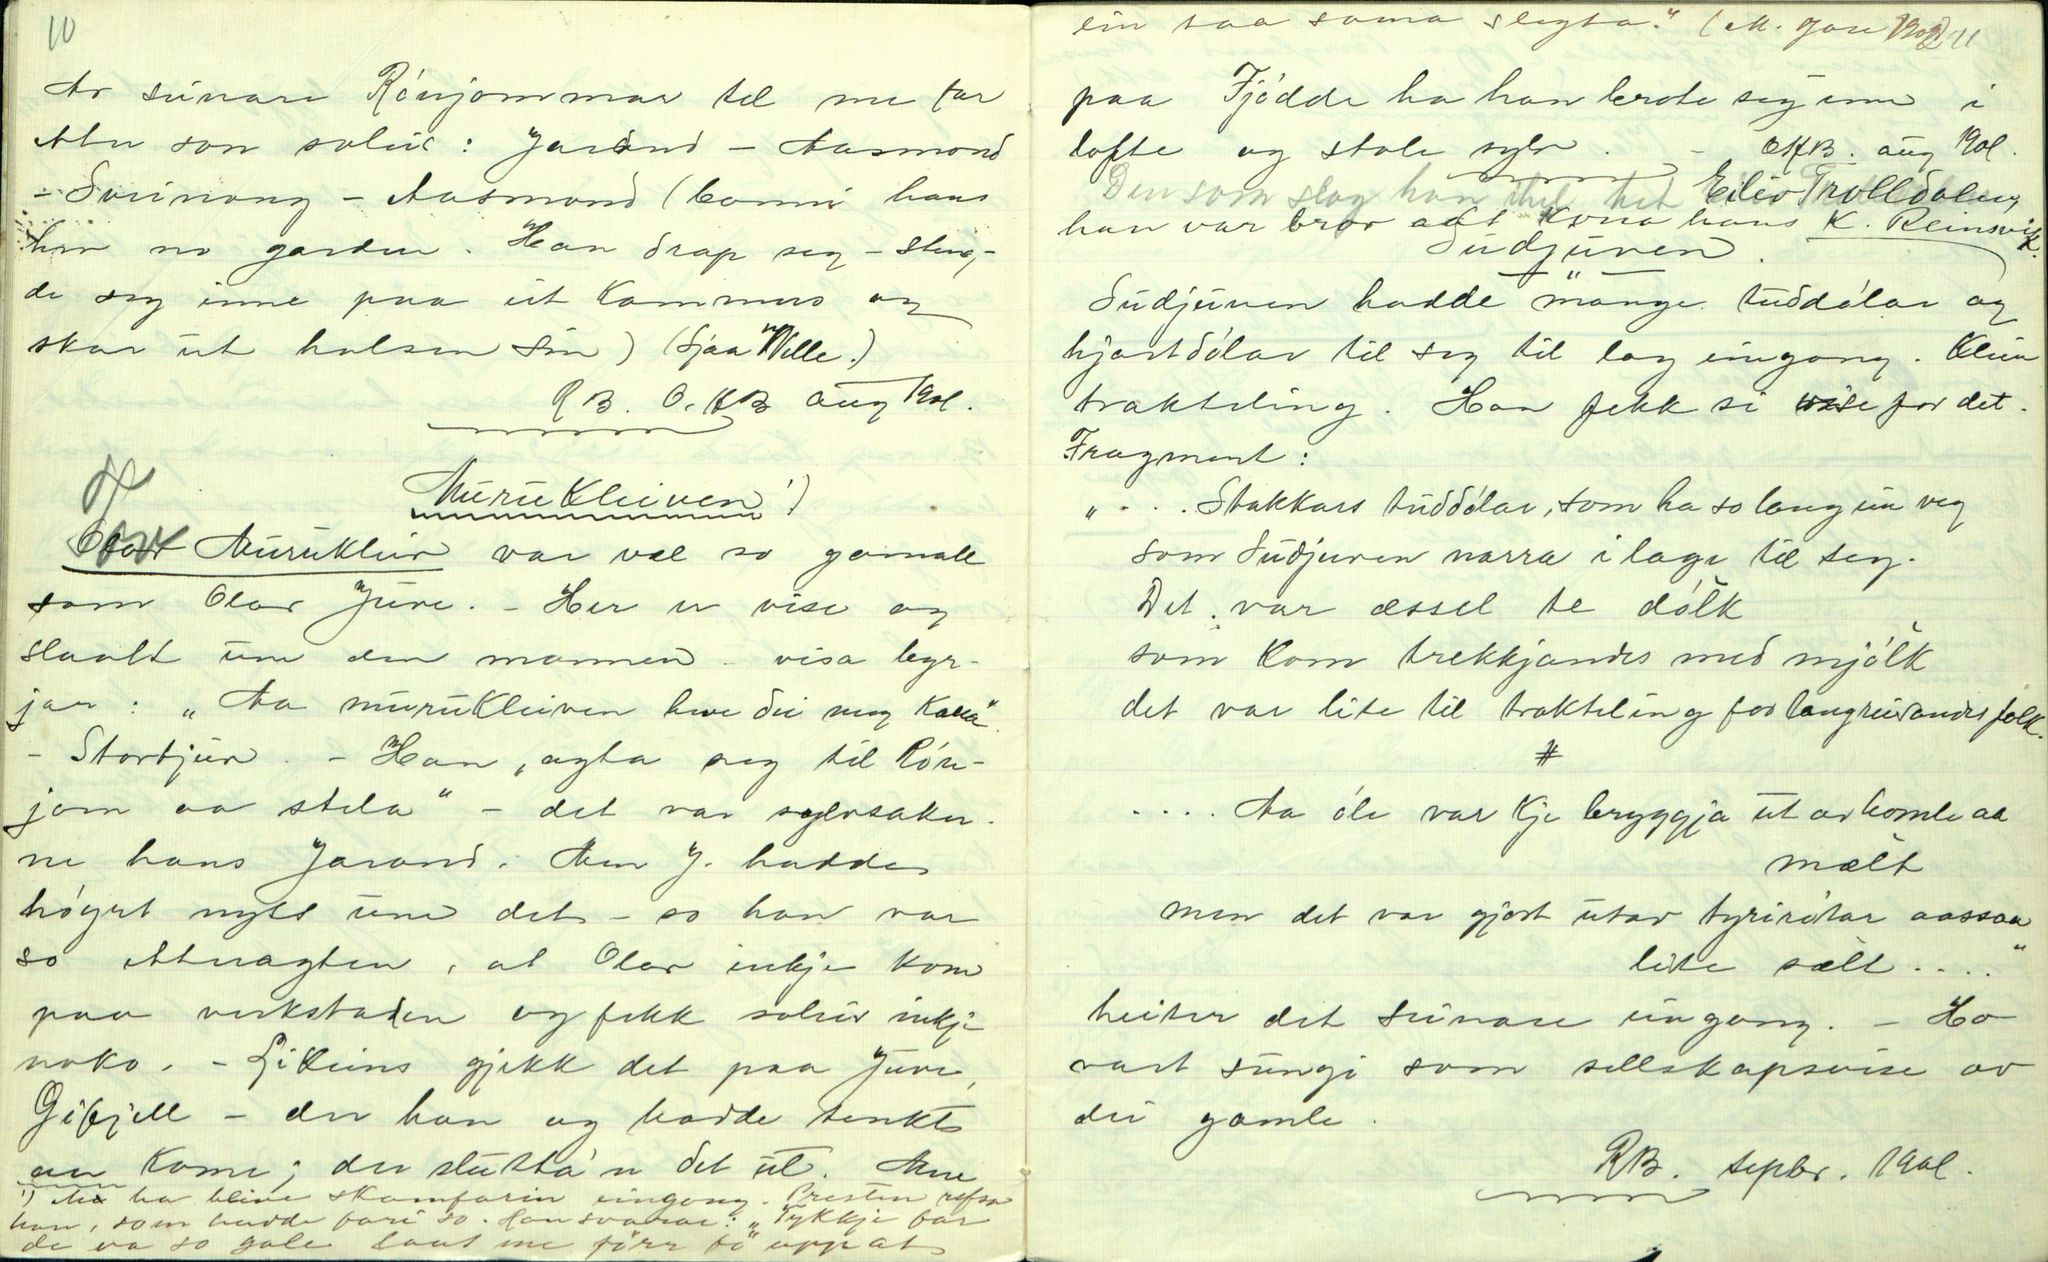 10
Av sunare Rónjommar til me far
etter son soleis: Jarand - Aasmond
- Sveinung - Aasmond (bonni hans
her no garden. Han drap seg - steng-
de seg inne paa eit kammers og
skar ut halsen sin) (Sjaa Wille.)
R B. O. H B aug 1901.
Murukleiven ¹)
Olav Murukleiv var vel so gamall
som Olav Juve. - Her er vise og
slaatt um den mannen - visa byr-
jar: „Aa murukleiven hve dei meg kalla"
- Stortjuv. - Han „agta seg til Rón-
jom aa stela" - det var sylvsaker-
ne hans Jarand. Men J. hadde
høyrt nyss um det - so han var
so attragten, at Olav inkje kom
paa verkstaden og fekk soleis inkje
noko. - Likeins gjekk det paa Juve,
Gifjell - der han og hadde tenkt
aa koma; der slutta'n det ut. Men
¹) ha blive skamfarin eingong. Presten refsa
han, som hadde fari so. Han svarar: „Tykkje far
de va so gale laut me fórr fó upp at
ein taa sama slegta." (M. Jau 1902) 11
paa Fjódde ha han brote seg inn i
lofte og stole sylv. - OHB. aug 1901.
Den som slog han ihel het Eiliv Trolldalen,
han var bror aat kona hans K. Reinsvik.
Sudjuven.
Sudjuven hadde mange tuddólar og
hjartdólar til seg til lag eingong. Klein
trakteling. Han fekk si vise for det.
Fragment:
„ . . . Stakkars tuddólar, som ha so lang ein veg
som Sudjuven narra i lage til seg.
Det var æssel te dólk
som kom trekkjandes med mjólk
det var lite til trakteling for langreisandes folk.
#
. . . . Aa óle var kje bryggja ut av homle aa
mælt
men det var gjort utav tyrirótar aassaa
lite sælt . . . ."
heiter det sunare eingong. - Ho
vart sungi som sellskapsvise av
dei gamle.
RB. septbr. 1901.